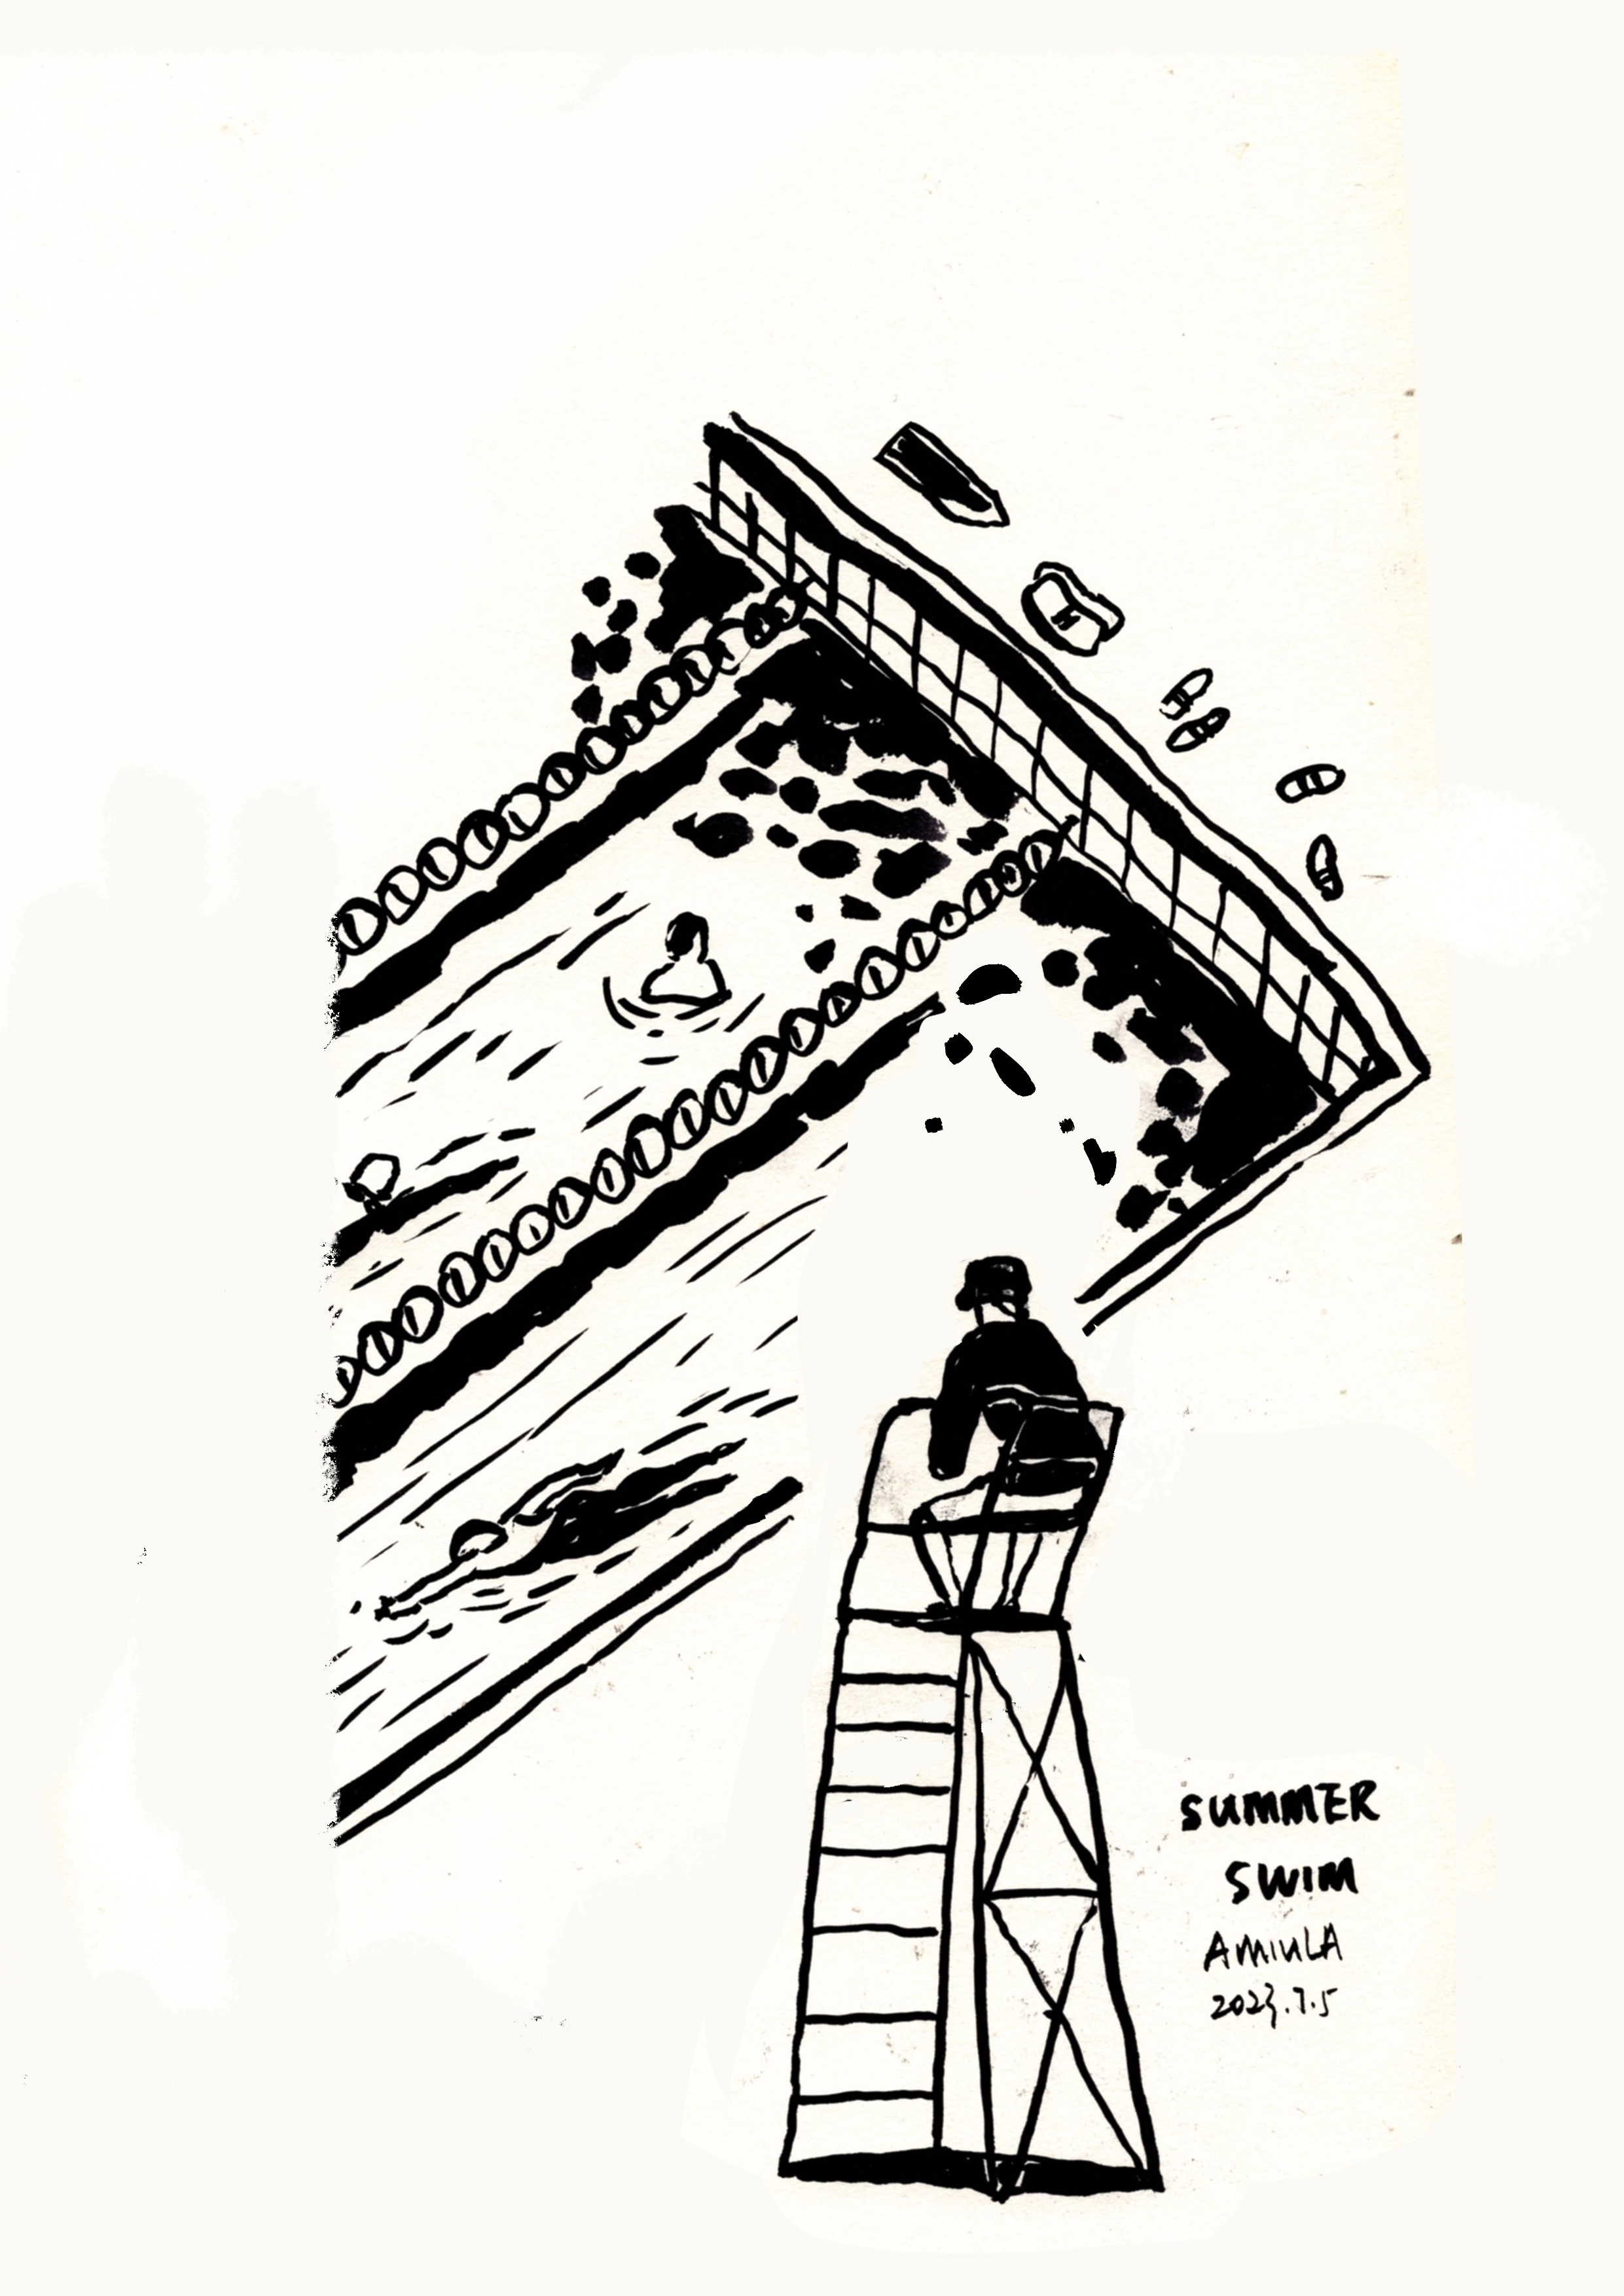 SUMMER
SWIM
AMIULA
2023.7.5